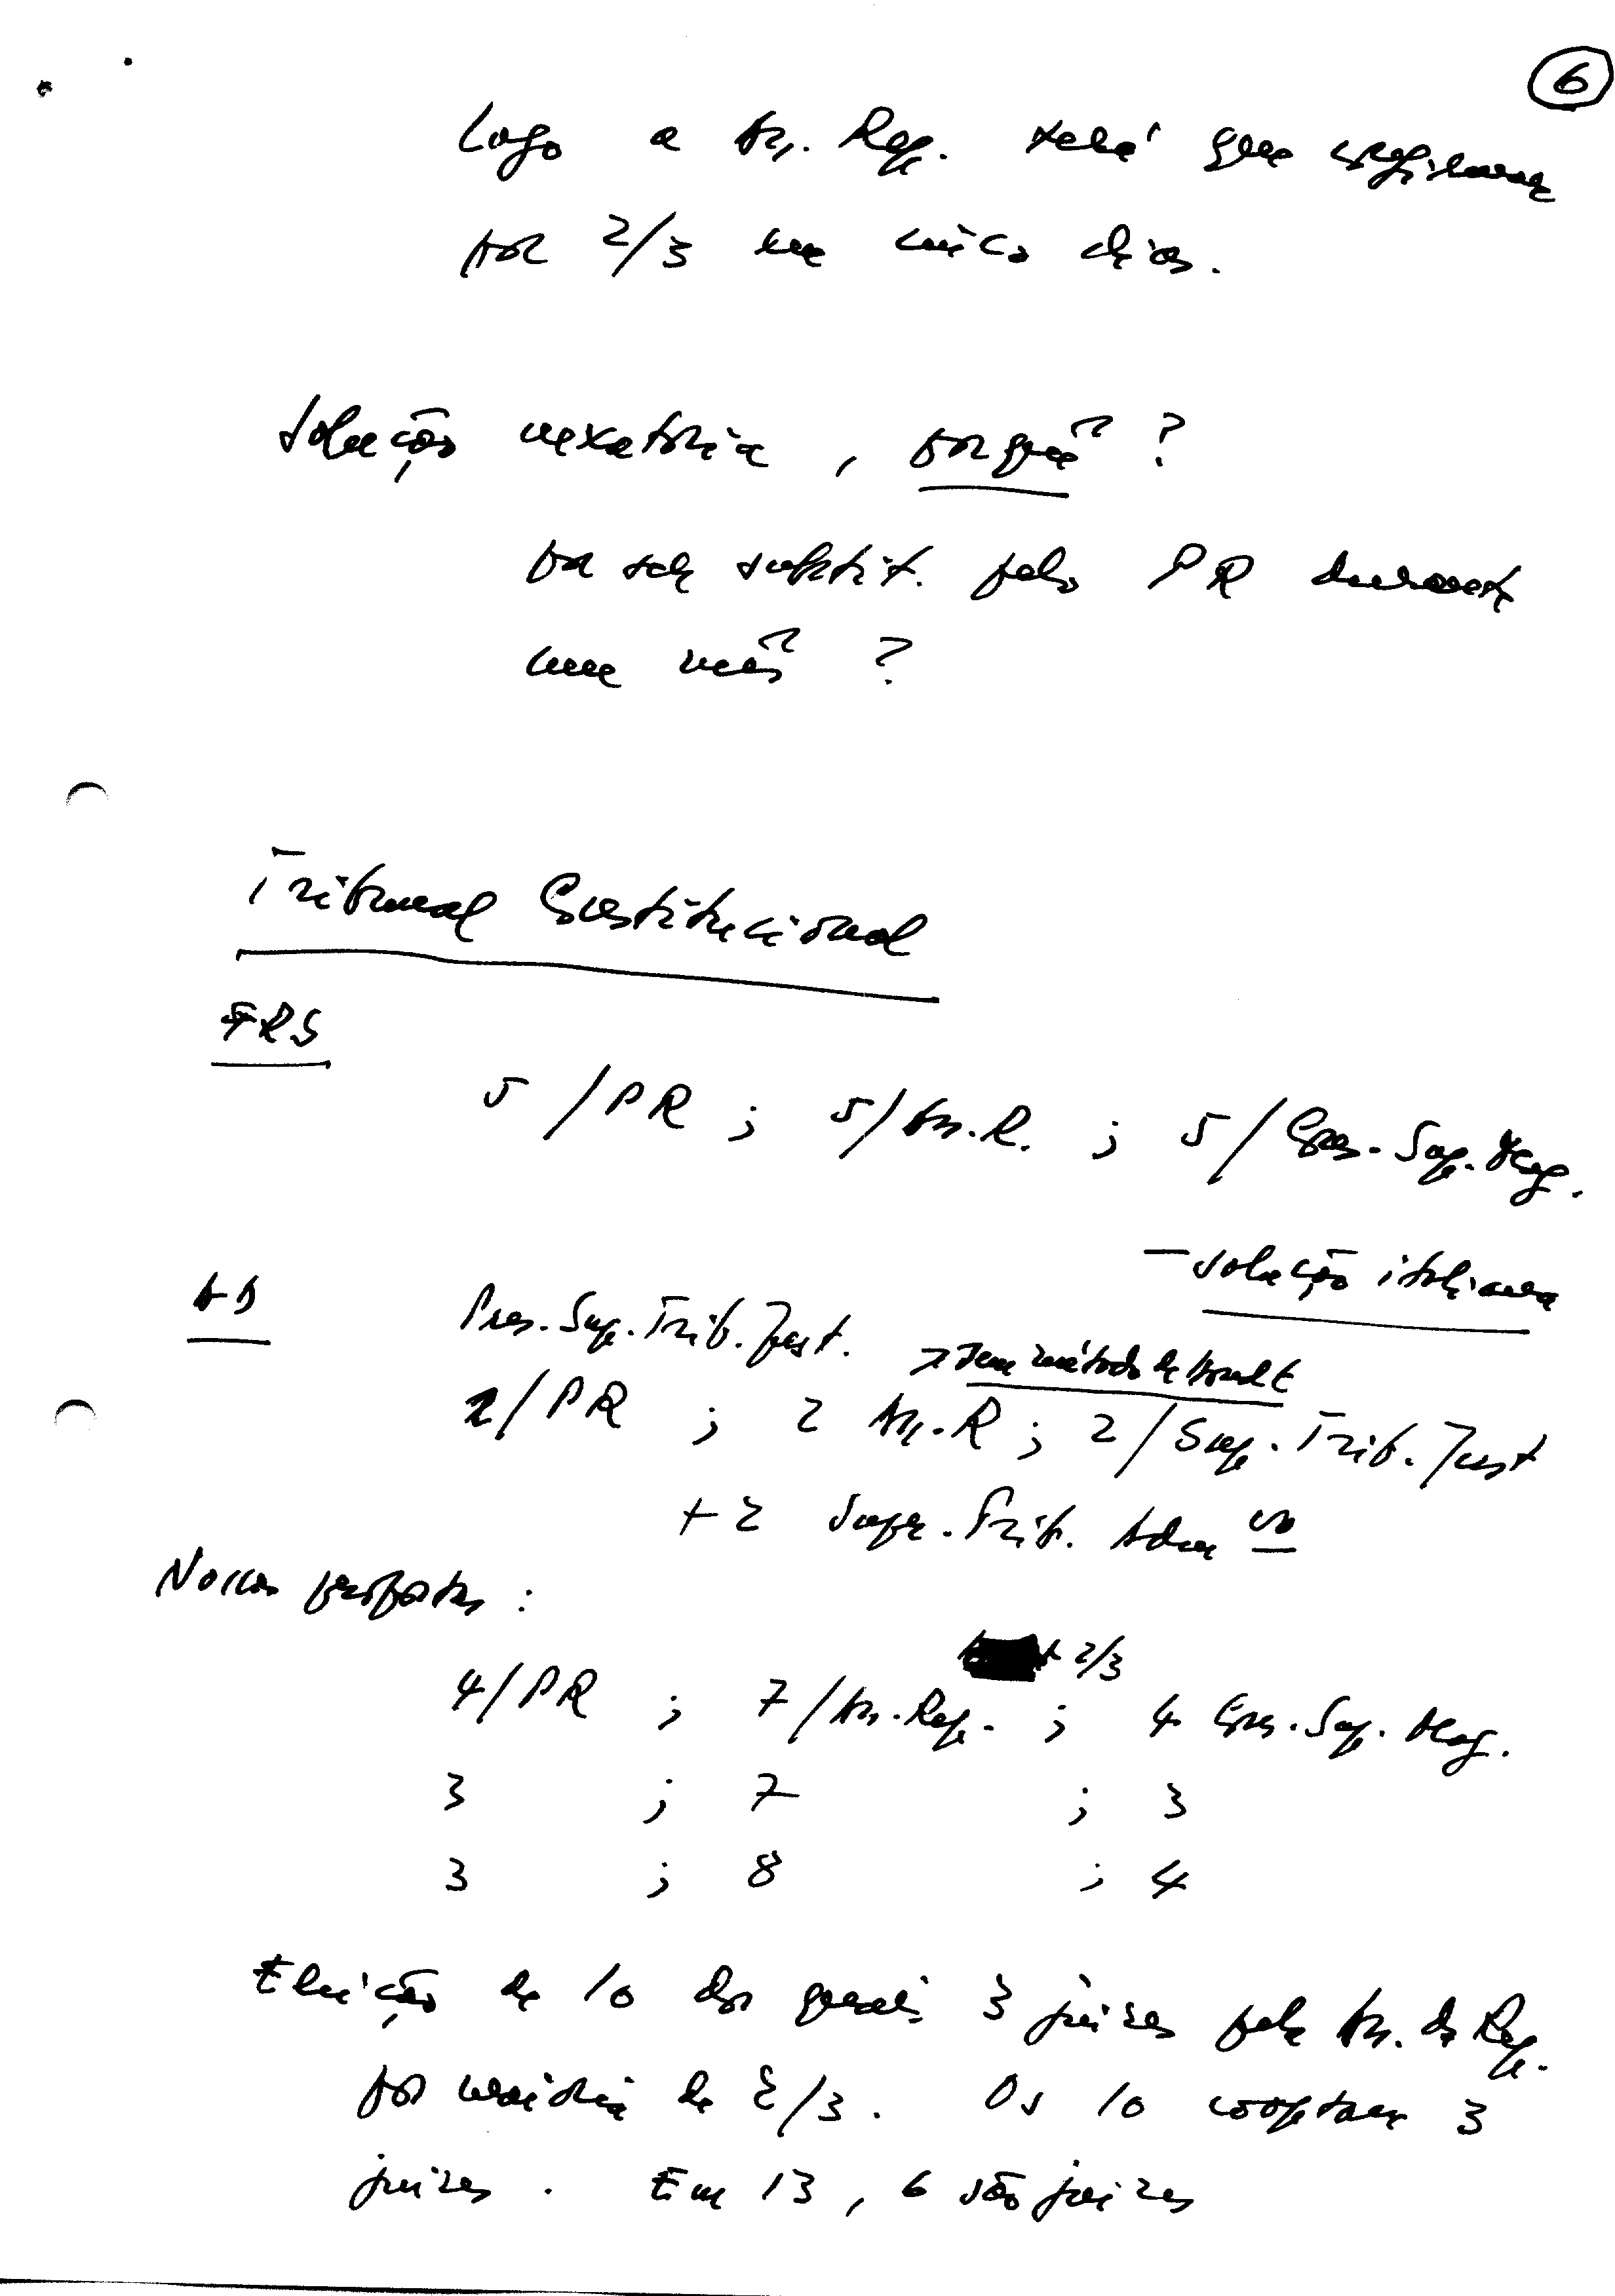 6
Logo a Ass. Rep. terá que
por 2/3 em cinco dias.
Solução vexatória, porquê ?
por ser substit. pelo PR durante
um mês ?
Tribunal Constitucional
FRS
5 / PR ; 5 / Ass. R. ; 5 / Cons. Sup. Mag.
– solução italiana
AD
Pres. Sup. Trib. Just. → sem método de Hondt
2 / PR ; 2 Ass. R ; 2 / Sup. Trib. Just
+ 2 Supr. Trib. Adm vo
Nossas propostas :
2/3
4 / PR ; 7 / Ass. Rep. ; 4 Cons. Sup. Mag.
3 ; 7 ; 3
3 ; 8 ; 4
Eleição de 10 dos quais 3 juizes pela Ass. da Rep.
por maioria de 2/3. Os 10 cooptam 3
juizes. Em 13, 6 são juizes